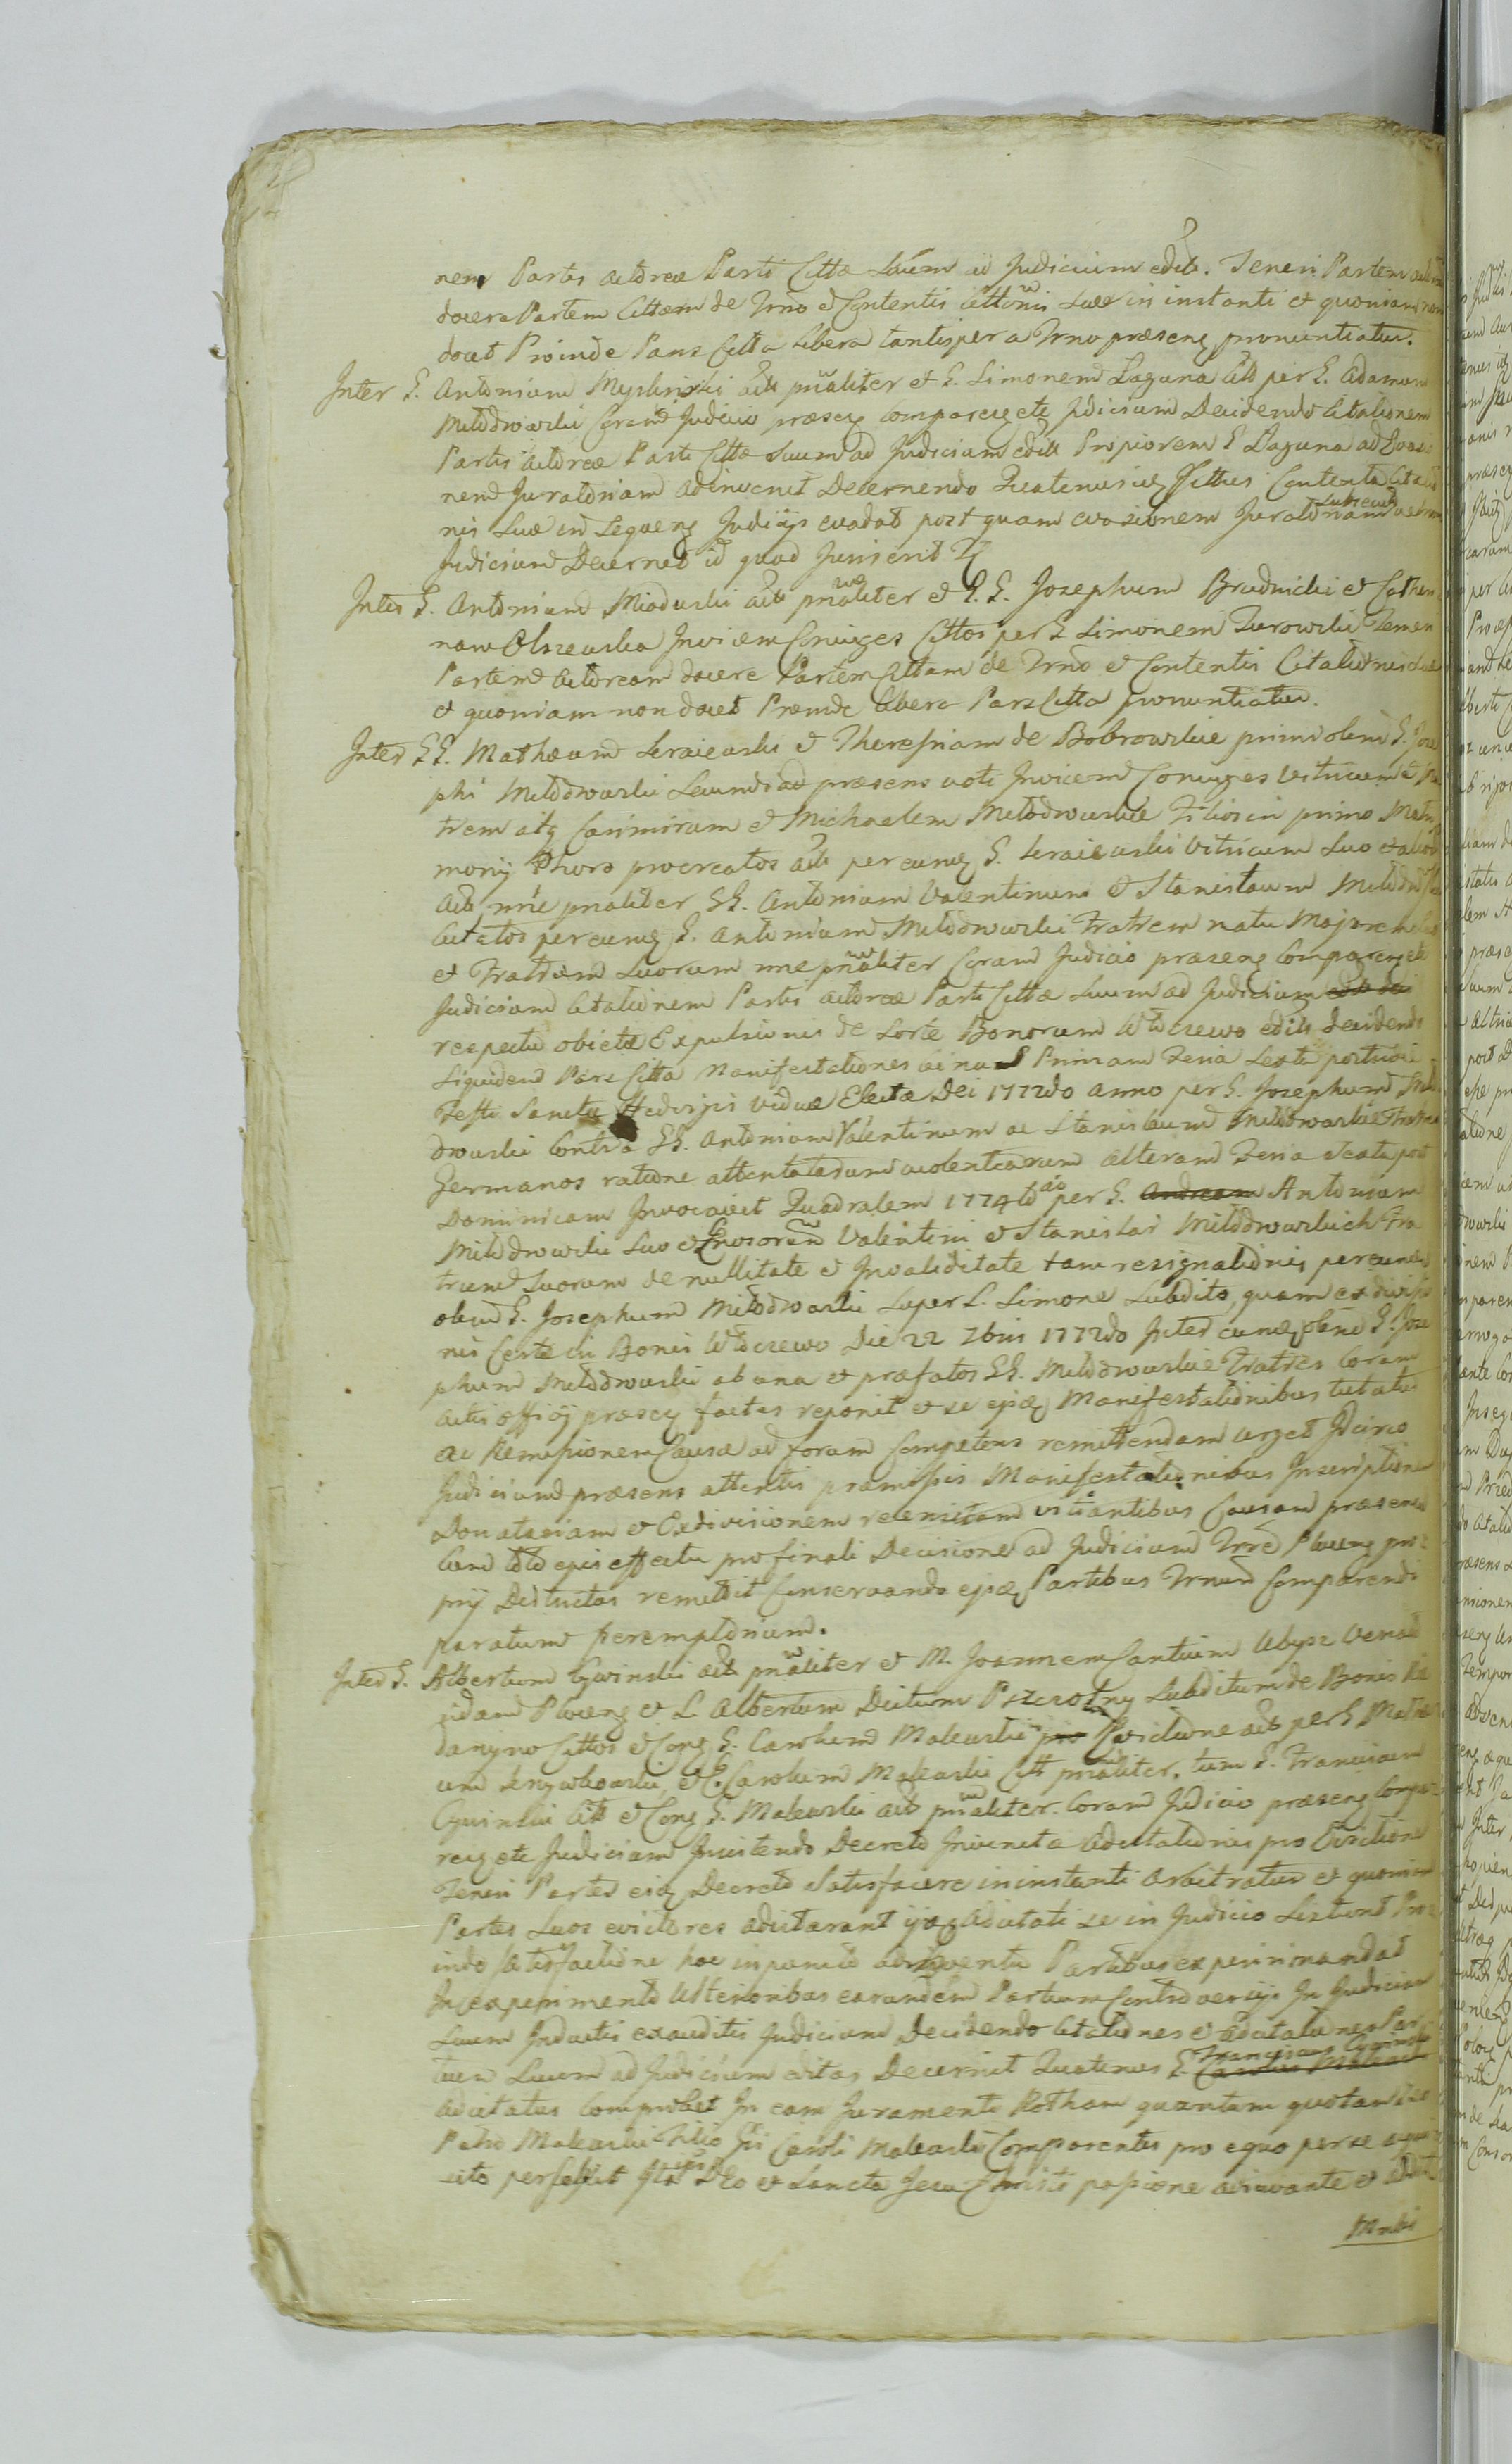 nem Partis actoreae Parti Cittae suum ad Judicium edit. Teneri Partem
docere Partem Cittam de Trno et Contentis Cittonis suae in instanti et quoniam non
docet Proinde Pars Citta libera tantisper a Trno praesenq pronuntiatur.
Inter G. Antonium Myslinski act pnaliter et G. Simonem Laguna Citt per G. Adamum
Miłodrowski Coram Judicio praesenq Comparenq etc Judicium Decidendo Citationem
Partis actoreae Parti Cittae suum ad Judicium edit Propiorem G Laguna ad
nem Juratoriam adinvenit Decernendo Quatenus
nis suae in Sequenq Judicijs evadat post quam evasionem Juratoriam subsecut
Judicium Decernet id quod Juris erit
Inter G. Antonium Mioduski act pnaliter et G. G. Josephum Brudnicki et Cathari
nam Olszewska Invicem Coniuges Cittos per G Simonem Zurowski Teneri
Partem Actoream docere Partem Cittam de Trno et Contentis Citationis suae
et quoniam non docet Proinde libera Pars Citta pronuntiatur.
Inter GG. Mathaeum et Theresiam de Bobrowskie primi olim G. Jose
phi Miłodrowski secundi ad praesens voti Invicem Coniuges Vitricum et
trem atq Casimirum et Michaelem Miłodrowskie Filios in primo Matri
monij Thoro procreatos act per eumq G. Vitricum suo et alior
act nne pnaliter GG. Antonium Valentinum et Stanislaum
Citatos per eumq G. Antonium Miłodrowski Fratrem natu Majorem suo
et Fratrum suorum nne pnaliter Coram Judicio praesenq Comparenq etc
Judicium Citationem Partis actoreae Parti Cittae suum ad Judicium
respectu obiectae Expulsionis de Sorte Bonorum edit decidendo
Siquidem Pars Citta Manifestationes binas Primam Feria Sexta postridie
Festi Sanctae Hedvigis viduae Electae Dei 1772do anno per G. Josephum
drowski Contra GG. Antonium Valentinum ac Stanislaum Miłodrowskie Fratres
Germanos ratione attentatarum violentiarum alteram Feria sexta post
Dominicam Invocavit Quadralem 1774to ao per G. Andream Antonium
Miłodrowski suo et Valentini et Stanislai Miłodrowskich Fra
trum suorum de nullitate et Invaliditate tam resignationis per eumq
olim G. Josephum Miłodrowski super L. Simone Subdito, quam exdivisio
nis Certe in Bonis Die 22 7bris 1772do Inter eumq olim G. Jose
phum Miłodrowski ab una et praefatos GG. Miłodrowskie Fratres Coram
actis officij praesenq factas reponit et se ejsq Manifestationibus tutatur
ac Remissionem Causae ad forum Competens remittendam urget Idcirco
Judicium praesens attentis praemissis Manifestationibus Inscriptionem
Donatariam et Exdivisionem recensitam vitiantibus Causam praesentem
Cum toto ejus effectu pro finali Decisione ad Judicium Trre pro
prij Districtus remittit Conservando ejsq Partibus Trnum Comparendi
paratum peremptorium.
Inter G. Albertum Cywinski act pnaliter et M. Joannem Cantium
et L. Albertum Dictum Subditum de Bonis
Cittos et Conq G. Carolum Makowski pro Evictione act per G
um et G. Carolum Makowski Citt pnaliter. tum G. Franciscum
Cywinski Citt et Conq G. Makowski act pnaliter. Coram Judicio praesenq Compa
renq etc Judicium Insistendo Decreto Inventa Adcitationis pro Evictione
Teneri Partes eisq Decreto Satisfacere in instanti arbitratur et quoniam
Partes suos evictores adcitarunt ijsq adcitati se in Judicio sistunt Pro
inde satisfactione hoc in puncto adinventa Partibus experiri mandat
In experimento Ulterioribus earundem Partium Controversijs In Judicium
suum Inductis exauditis Judicium Decidendo Citationes et adcitationes Par
tium suum ad Judicium editas Decernit Quatenus G. Franciscus Cywinski
adcitatus Comprobet In eam Juramenti Rotham quantum quotam
Petro Makowski Filio Gsi Caroli Makowski Comparentis pro equo per se
sito persolvit Ita ejus Deo et Sancta Jesu Christi passione adiuvante et